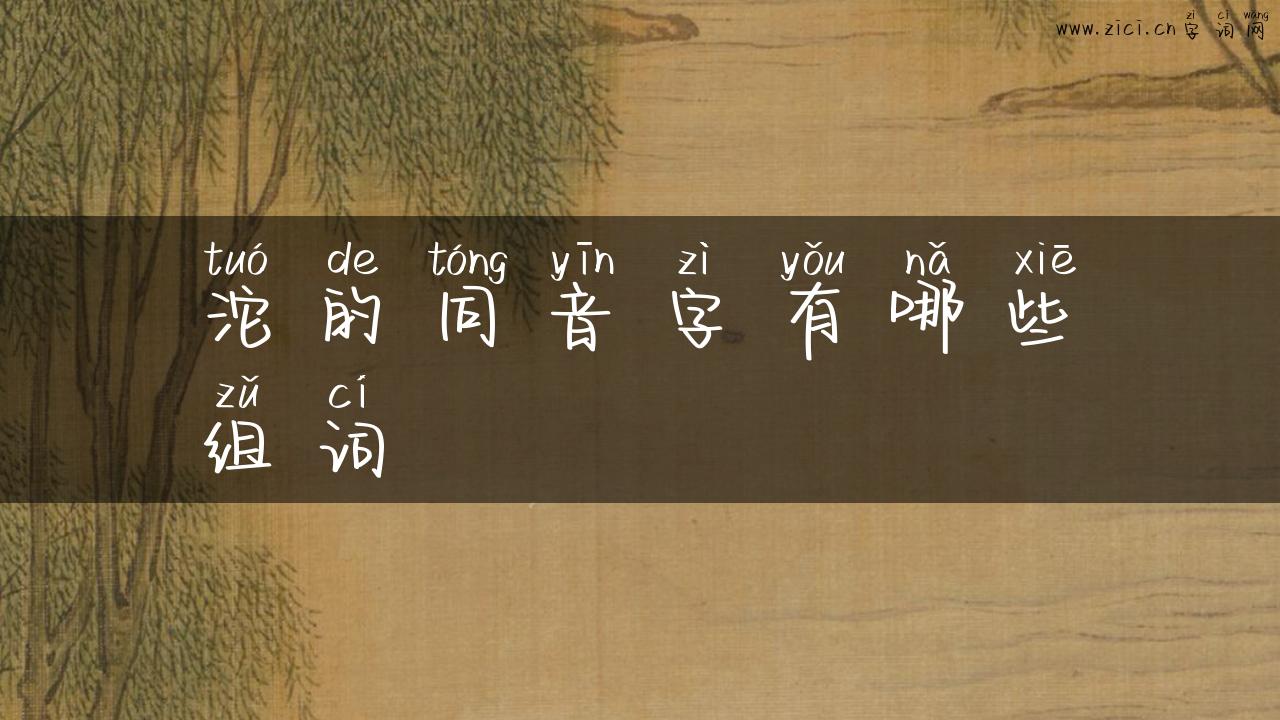 zì cí wǎng
www.zici.cn 字词网
tuó de tóng yīn zì yǒu nǎ xiē
沱的同音字有哪些
zǔ cí
组词